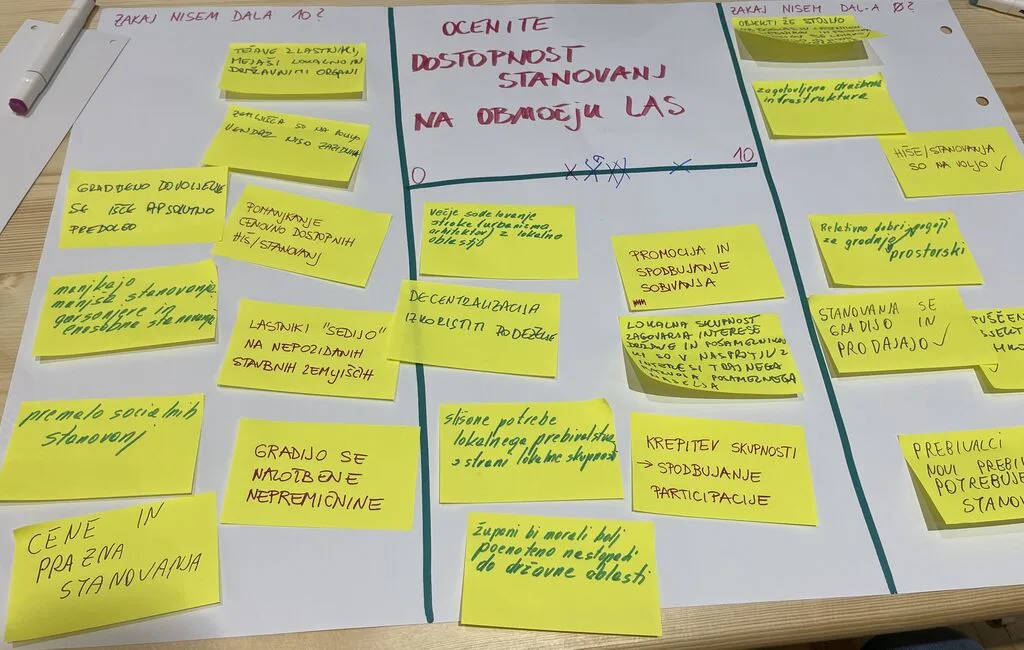 ZAKAJ NISEM DALA 10?
TEŽAVE Z LASTNIKI,
MEJAŠI LOKALNO IN
DRŽAVNIMI ORGANI
ZEMLJIŠČA SO NA VOLJO
VENDAR NISO ZAZIDLJIVA
GRADBENO DOVOLJENJE
SE IŠČE APSOLUTNO
PREDOLGO
POMANJKANJE
CENOVNO DOSTOPNIH
HIŠ/STANOVANJ
manjkajo
manjša stanovanja
garsonjere in
enosobna stanovanja
LASTNIKI "SEDIJO"
NA NEPOZIDANIH
STAVBNIH ZEMLJIŠČIH
premalo socialnih
stanovanj
GRADIJO SE
NALOŽBENE
NEPREMIČNINE
CENE IN
PRAZNA
STANOVANJA
OCENITE
DOSTOPNOST
STANOVANJ
NA OBMOČJU LAS
0
10
večje sodelovanje
stroke (urbanizma,
arhitektov) z lokalno
oblastjo
DECENTRALIZACIJA
IZKORISTITI PODEŽELJE
PROMOCIJA IN
SPODBUJANJE
SOBIVANJA
LOKALNA SKUPNOST
ZAGOVARJA INTERESE
DRŽAVE IN POSAMEZNIKOV
KI SO V NASPROTJU Z
INTERESI TRAJNEGA
POSAMEZNEGA
NASELJA
slišane potrebe
lokalnega prebivalstva
s strani lokalne skupnosti
KREPITEV SKUPNOSTI
→ SPODBUJANJE
PARTICIPACIJE
župani bi morali bolj
poenoteno nastopati
do državne oblasti
ZAKAJ NISEM DAL-A 0?
OBJEKTI ŽE STOJIJO
zagotovljena družbena
infrastruktura
HIŠE/STANOVANJA
SO NA VOLJO ✓
Relativno dobri pogoji
za gradnjo
prostorski
STANOVANJA SE
GRADIJO IN
PRODAJAJO ✓
PREBIVALCI
NOVI PREBIV
POTREBUJE
STANO